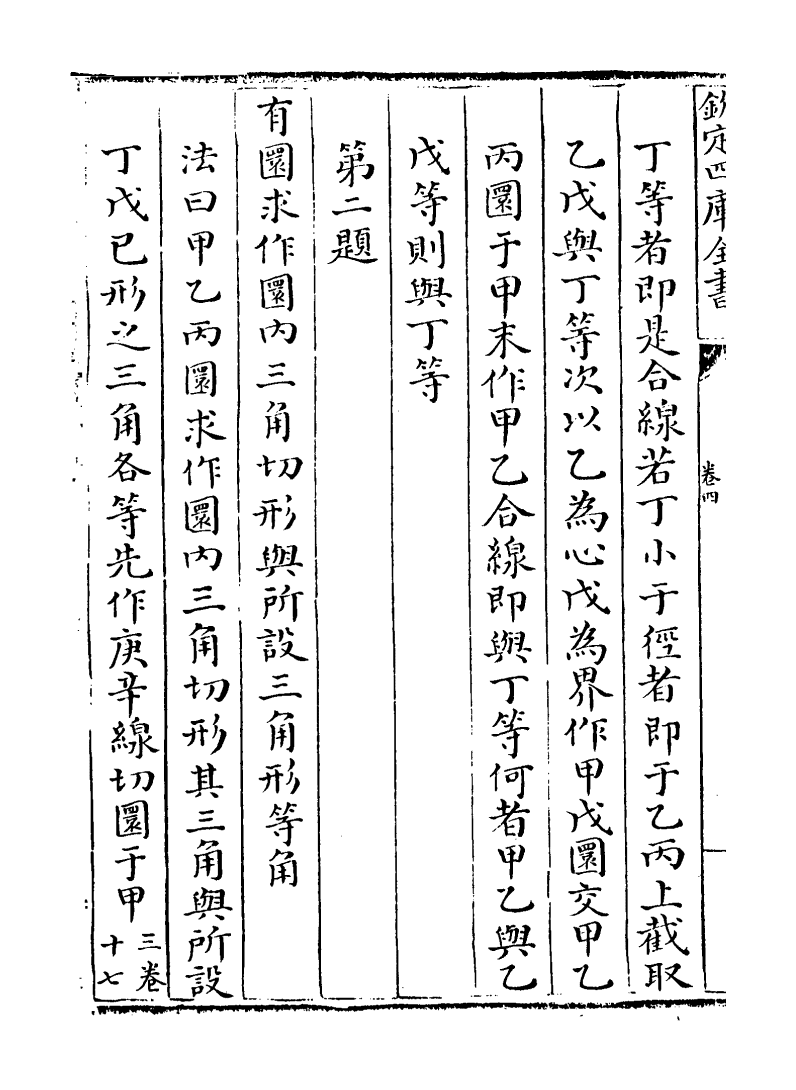 欽定四庫全書
卷四
丁等者即是合線若丁小于徑者即于乙丙上截取
乙戊與丁等次以乙為心戊為界作甲戊圜交甲乙
丙圜于甲末作甲乙合線即與丁等何者甲乙與乙
戊等則與丁等
第二題
有圜求作圜内三角切形與所設三角形等角
法曰甲乙丙圜求作圜内三角切形其三角與所設
丁戊已形之三角各等先作庚辛線切圜于甲三卷十七